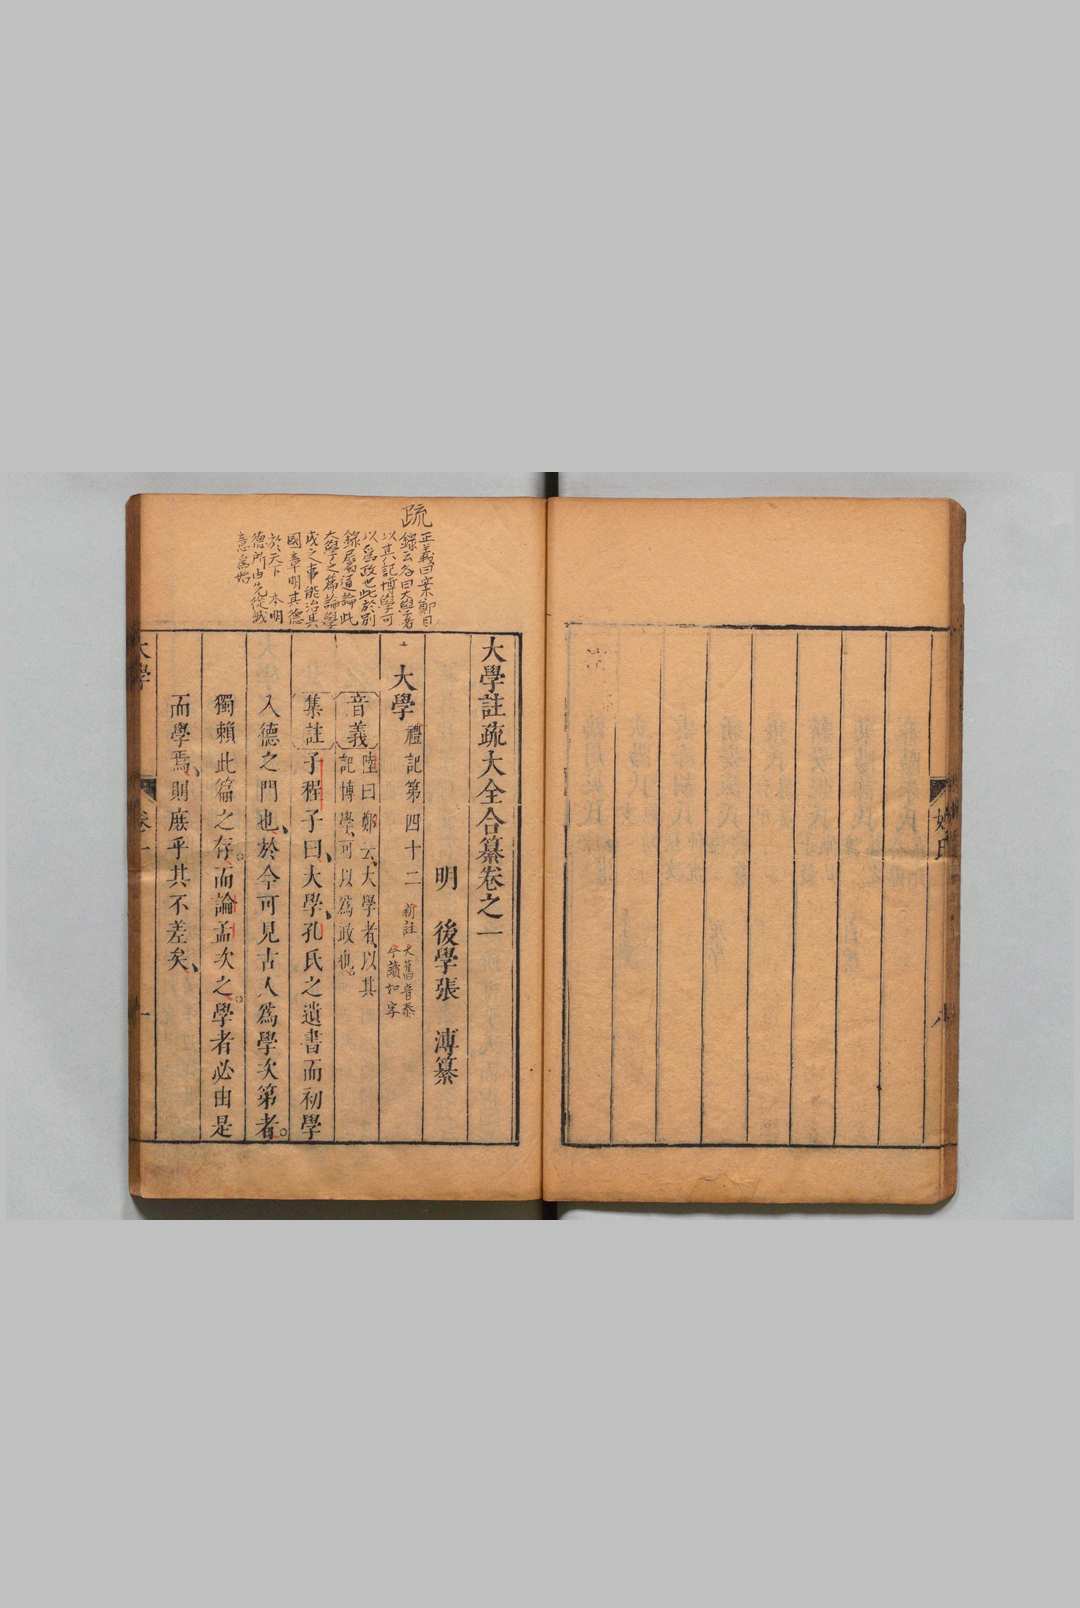 疏
正義曰案鄭目
錄云名曰大學者
以其記博學可
以爲政也此於別
錄屬通論此
大學之篇論學
成之事能治其
國章明其德
於天下 本明
德所由先從誠
意爲始
大學註疏大全合纂卷之一
明 後學張 溥纂
大學 禮記第四十二 新註 大舊音泰
今讀如字
音義 陸曰鄭云大學者以其
記博學可以爲政也
集註 子程子曰大學孔氏之遺書而初學
入德之門也於今可見古人爲學次第者
獨賴此篇之存而論孟次之學者必由是
而學焉則庶乎其不差矣
大學
卷一
一
姓氏
八